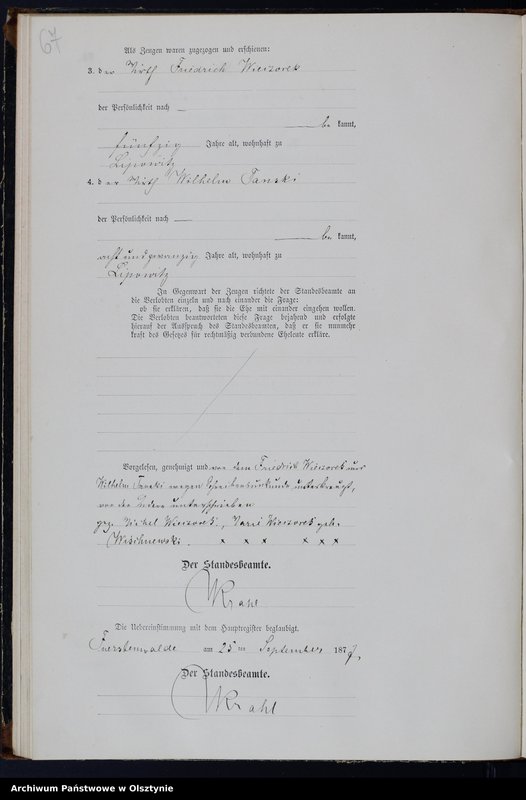 67
Als Zeugen waren zugezogen und erschienen:
3. der Wirth Friedrich Wieczorek
der Persönlichkeit nach
be kannt,
fünfzig Jahre alt, wohnhaft zu
Lipowitz
4. der Wirth Wilhelm Tanski
der Persönlichkeit nach
be kannt,
acht und zwanzig Jahre alt, wohnhaft zu
Lipowitz
In Gegenwart der Zeugen richtete der Standesbeamte an
die Verlobten einzeln und nach einander die Frage:
ob sie erklären, daß sie die Ehe mit einander eingehen wollen.
Die Verlobten beantworteten diese Frage bejahend und erfolgte
hierauf der Ausspruch des Standesbeamten, daß er sie nunmehr
kraft des Gesetzes für rechtmäßig verbundene Eheleute erkläre.
Vorgelesen, genehmigt und von dem Friedrich Wieczorek und
Wilhelm Tanski wegen Schreibensunkunde unterkreuzt,
von den Andern unterschrieben
gez. Michel Wieczorek, Marie Wieczorek geb.
Wischnewski. x x x x x x
Der Standesbeamte.
Krahl
Die Uebereinstimmung mit dem Hauptregister beglaubigt.
Fuerstenwalde am 25 ten September 187
Der Standesbeamte.
Krahl
Archiwum Państwowe w Olsztynie